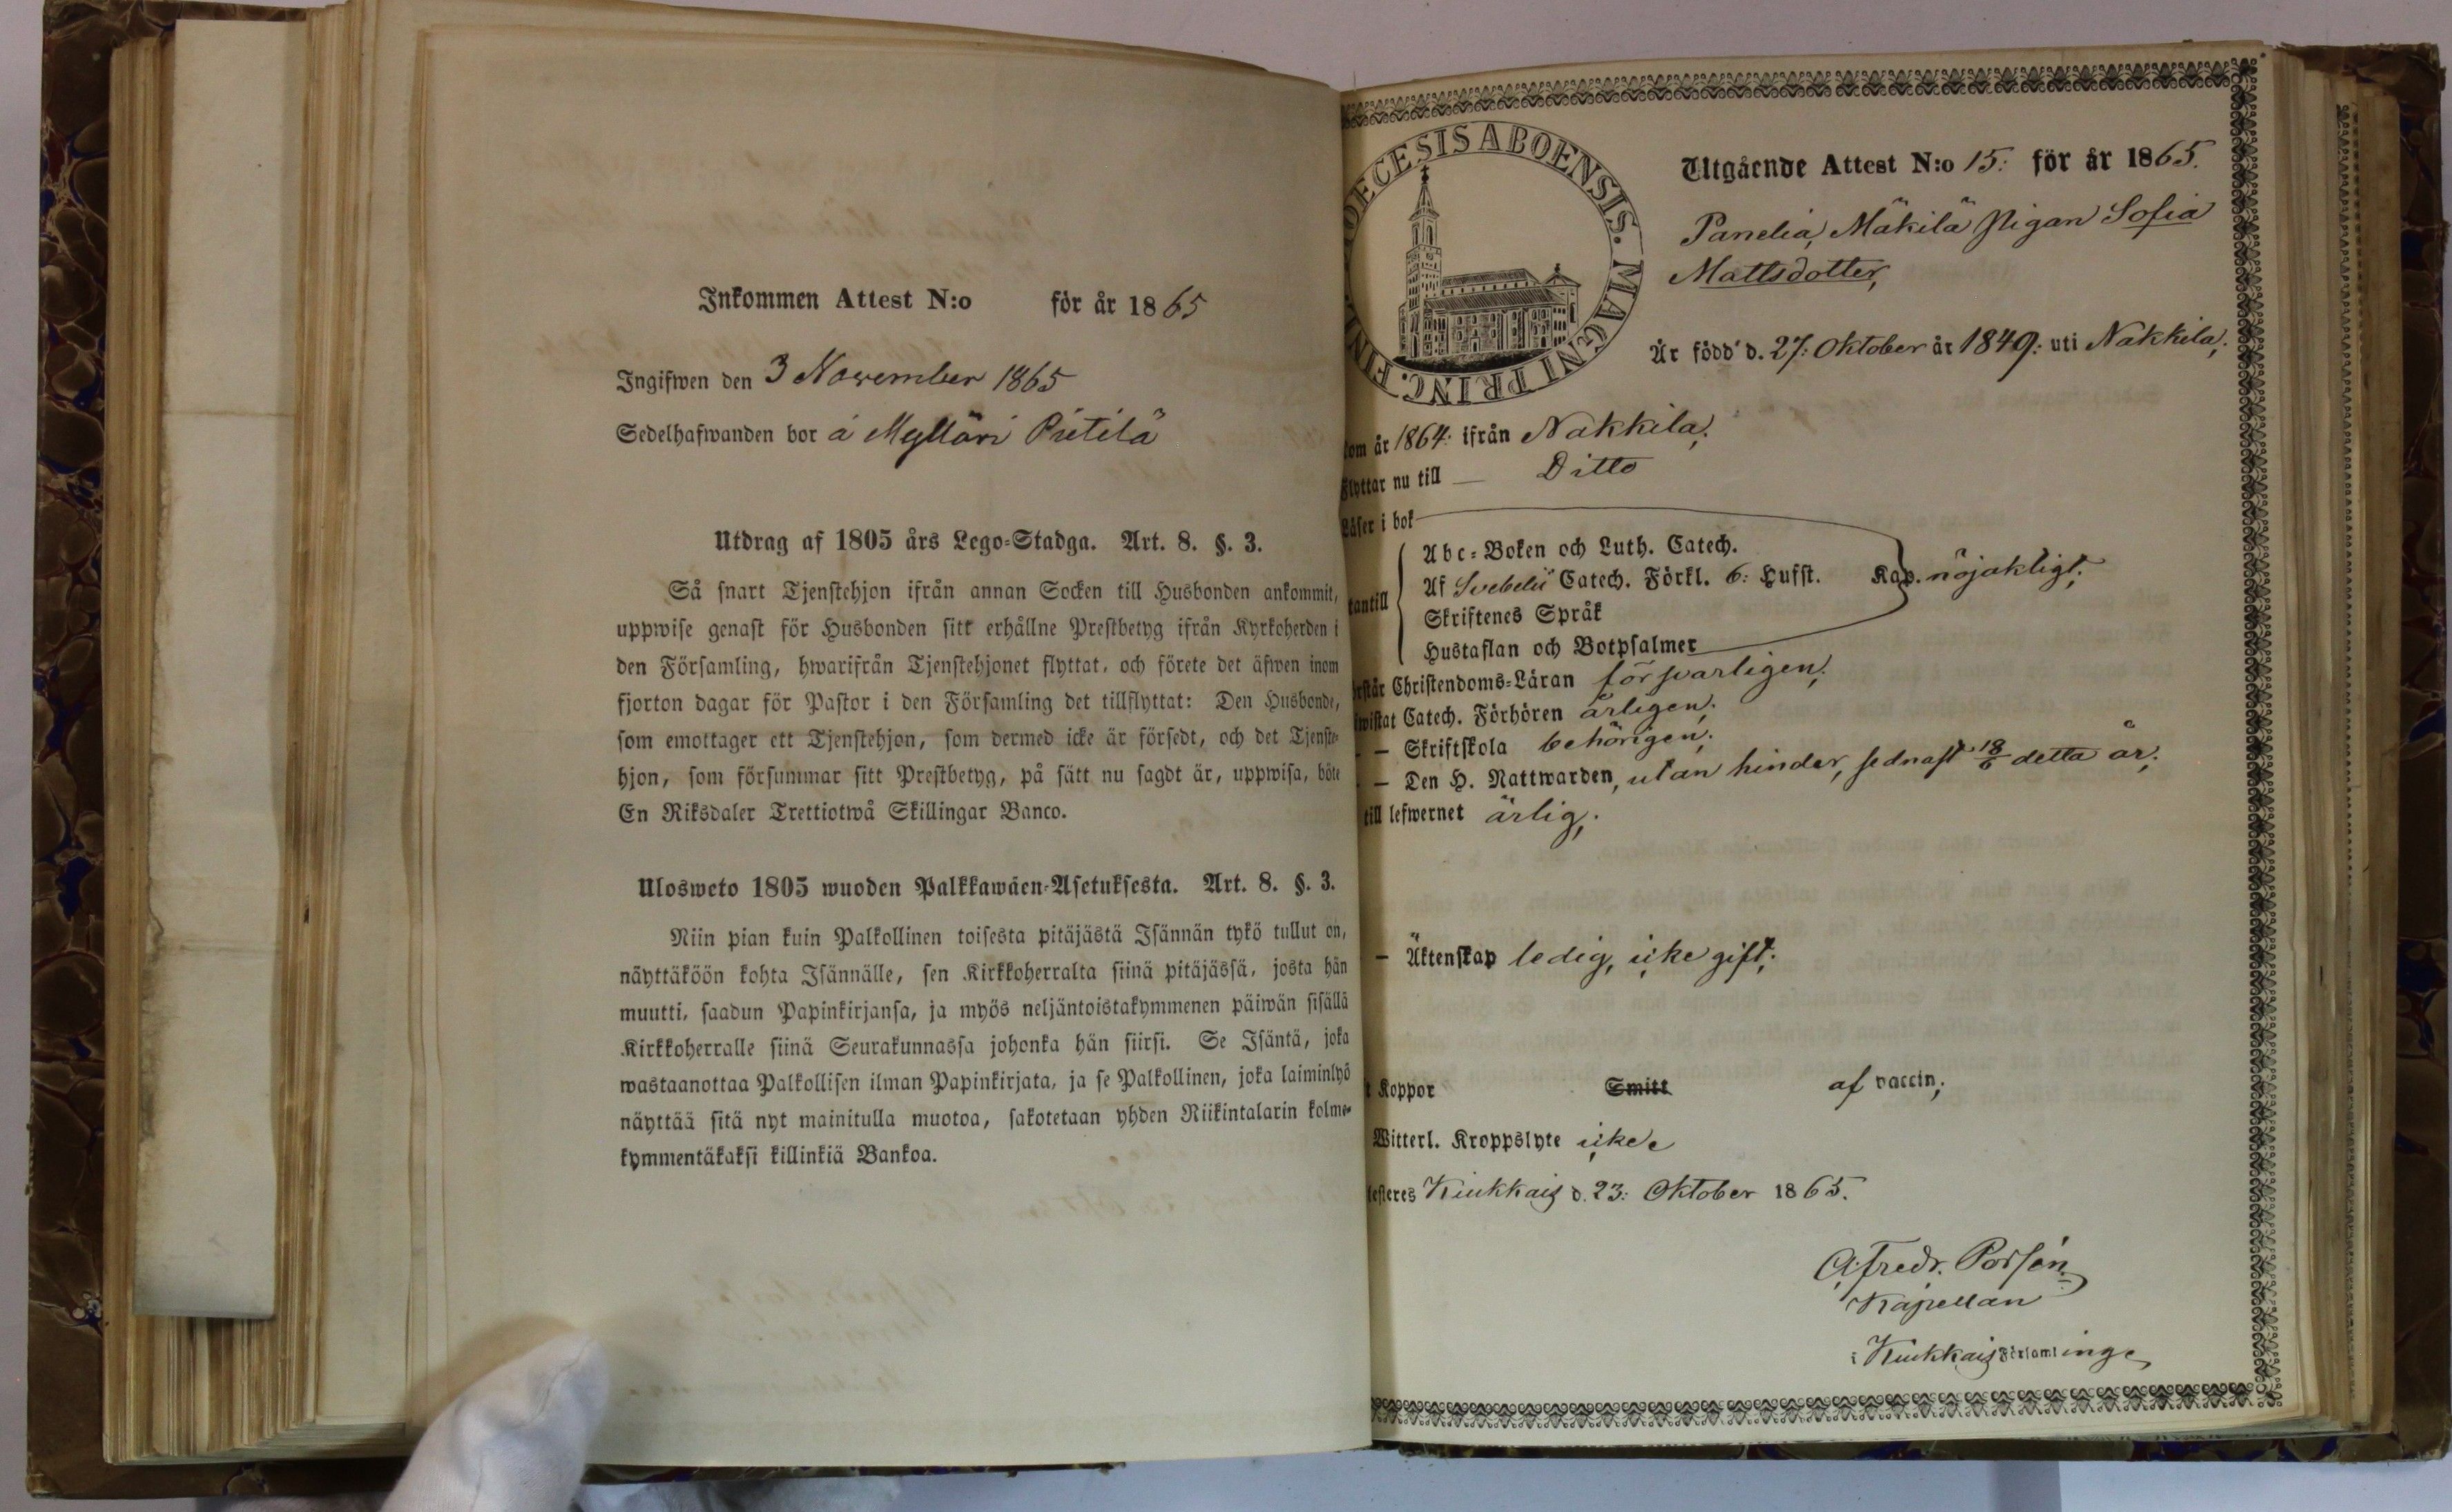 Inkommen Attest N:o för år 1865
Ingifwen den 3 November 1865
Sedelhafwanden bor á Mylläri Pietilä
Utdrag af 1805 års Lego-Stadga. Art. 8. §. 3.
Så snart Tjenstehjon ifrån annan Socken till Husbonden ankommit,
uppwise genast för Husbonden sitt erhållne Prestbetyg ifrån Kyrkoherden i
den Församling, hwarifrån Tjenstehjonet flyttat, och förete det äfwen inom
fjorton dagar för Pastor i den Församling det tillflyttat: Den Husbonde,
som emottager ett Tjenstehjon, som dermed icke är försedt, och det Tjenste-
hjon, som försummar sitt Prestbetyg, på sätt nu sagdt är, uppwisa, böte
En Riksdaler Trettiotwå Skillingar Banco.
Ulosweto 1805 wuoden Palkkawäen-Asetuksesta. Art. 8. §. 3.
Niin pian kuin Palkollinen toisesta pitäjästä Isännän tykö tullut on,
näyttäköön kohta Isännälle, sen Kirkkoherralta siinä pitäjässä, josta hän
muutti, saadun Papinkirjansa, ja myös neljäntoistakymmenen päiwän sisällä
Kirkkoherralle siinä Seurakunnassa johonka hän siirsi. Se Isäntä, joka
wastaanottaa Palkollisen ilman Papinkirjata, ja se Palkollinen, joka laiminlyö
näyttää sitä nyt mainitulla muotoa, sakotetaan yhden Riikintalarin kolme-
kymmentäkaksi killinkiä Bankoa.
OECESIS ABOENSIS. MAGNI PRINC. FINL
Utgående Attest N:o 15: för år 1865.
Panelia, Mäkilä Pigan Sofia
Mattsdotter,
Är född d. 27: Oktober år 1849: uti Nakkila;
kom år 1864: ifrån Nakkila;
Flyttar nu till — Ditto
Läser i bok
Abc-Boken och Luth. Catech.
utantill Af Svebelii Catech. Förkl. 6: Hufst. Kap. nöjaktigt;
Skriftenes Språk
Hustaflan och Botpsalmer
rstår Christendoms-Läran försvarligen;
wistat Catech. Förhören årligen;
— Skriftskola behörigen;
— Den H. Nattwarden, utan hinder, sednast 18/6 detta år;
till lefwernet ärlig;
— Äktenskap ledig, icke gift;
t Koppor Smitt af vaccin;
Witterl. Kroppslyte icke
testeres Kiukkais d. 23: Oktober 1865.
A. Fredr. Porsén
Kapellan
i Kiukkais Församlinge